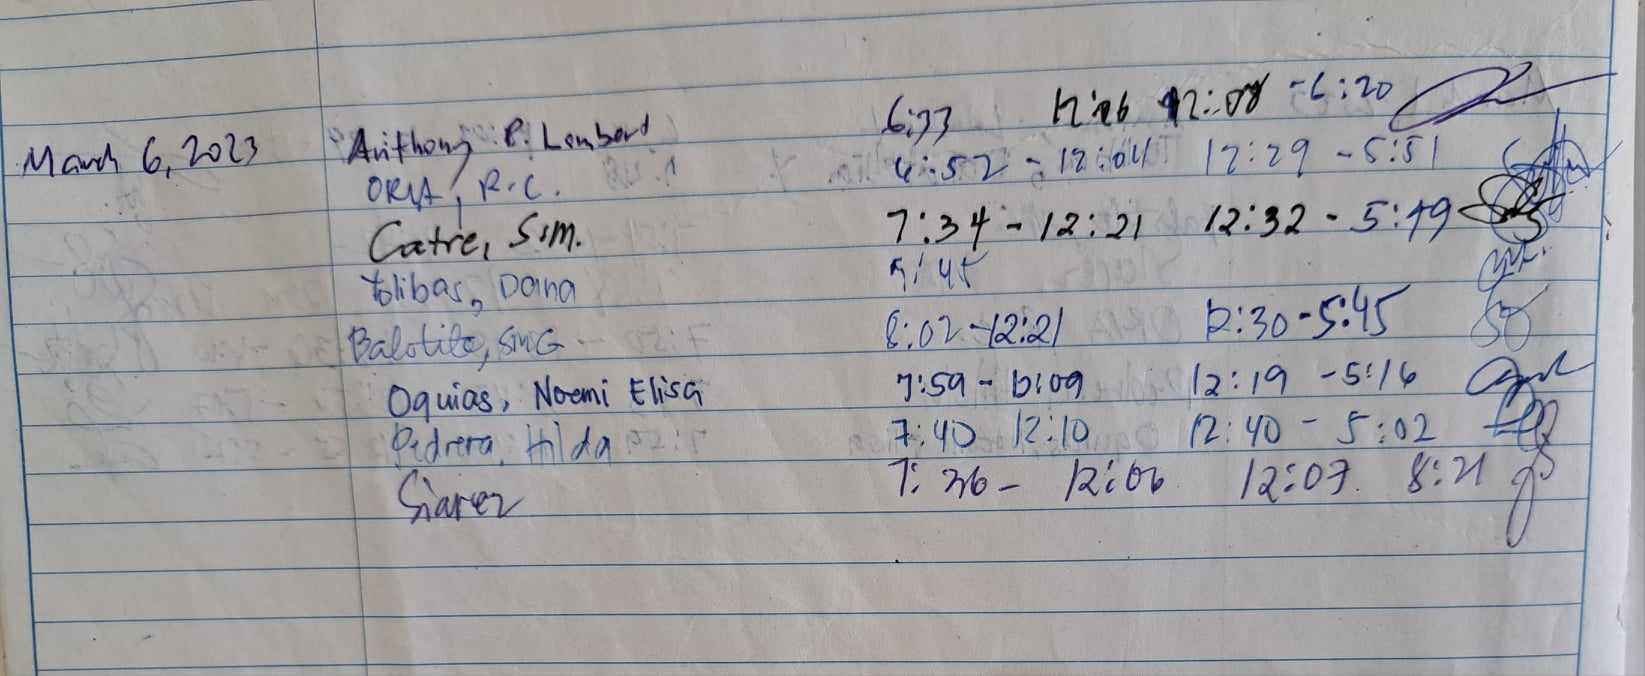 March 6, 2023 Anthony P. Lombard 6:33 12:06 12:08 -6:20
ORIA, R.C. 6:52 - 12:04 12:29 - 5:51
Catre, S.M. 7:34 - 12:21 12:32 - 5:49
Tolibas, Dana 9:45
Balotite, SMG 8:02 -12:21 12:30 - 5:45
Oquias, Noemi Elisa 7:59 - 12:09 12:19 - 5:16
Pedrera, Hilda 7:40 12:10 12:40 - 5:02
Siarez 7:36 - 12:06 12:07 8:21